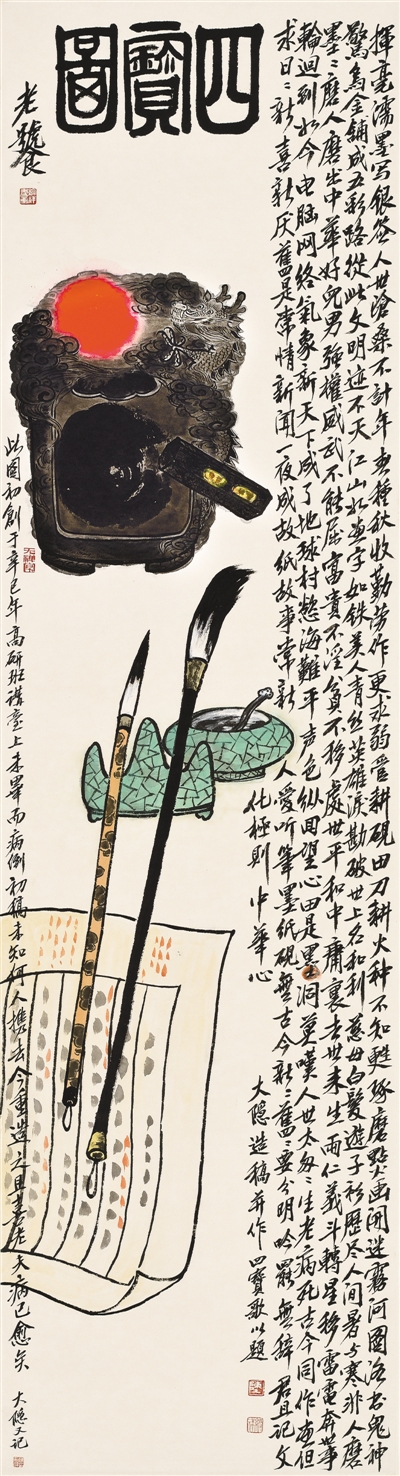 四寶圖
揮毫濡墨写銀箋人世滄桑不計年春種秋收勤劳作更求弱管耕硯田刀耕火种不知甦琢磨點画開迷霧河圖洛书鬼神
驚烏金鋪成五彩路從此文明迹不灭江山如画字如鉄美人青丝英雄淚勘破世上名和利慈母白髮遊子衫歷尽人间暑与寒非人磨
墨墨磨人磨出中華好兒男强權威武不能屈富貴不淫貧不移處世平和中庸裏去世未生兩仁義斗轉星移雷電奔
輪迴到如今电脑网络氣象新天下成了地球村慾海難平声色纵回望心田是黑洞莫嘆人世太匆匆生老病死古今同作画但
求日日新喜新厌舊是常情新聞一夜成故紙故事常新人愛听筆墨紙硯無古今新新舊舊要分明吟罷無辭君且記文
化極則中華心
大隐造稿并作四寶歌以題
此圖初創于辛巳年高研班講臺上未畢而病倒初稿未知何人携去今重造之且喜老天病已愈矣
大隐又记